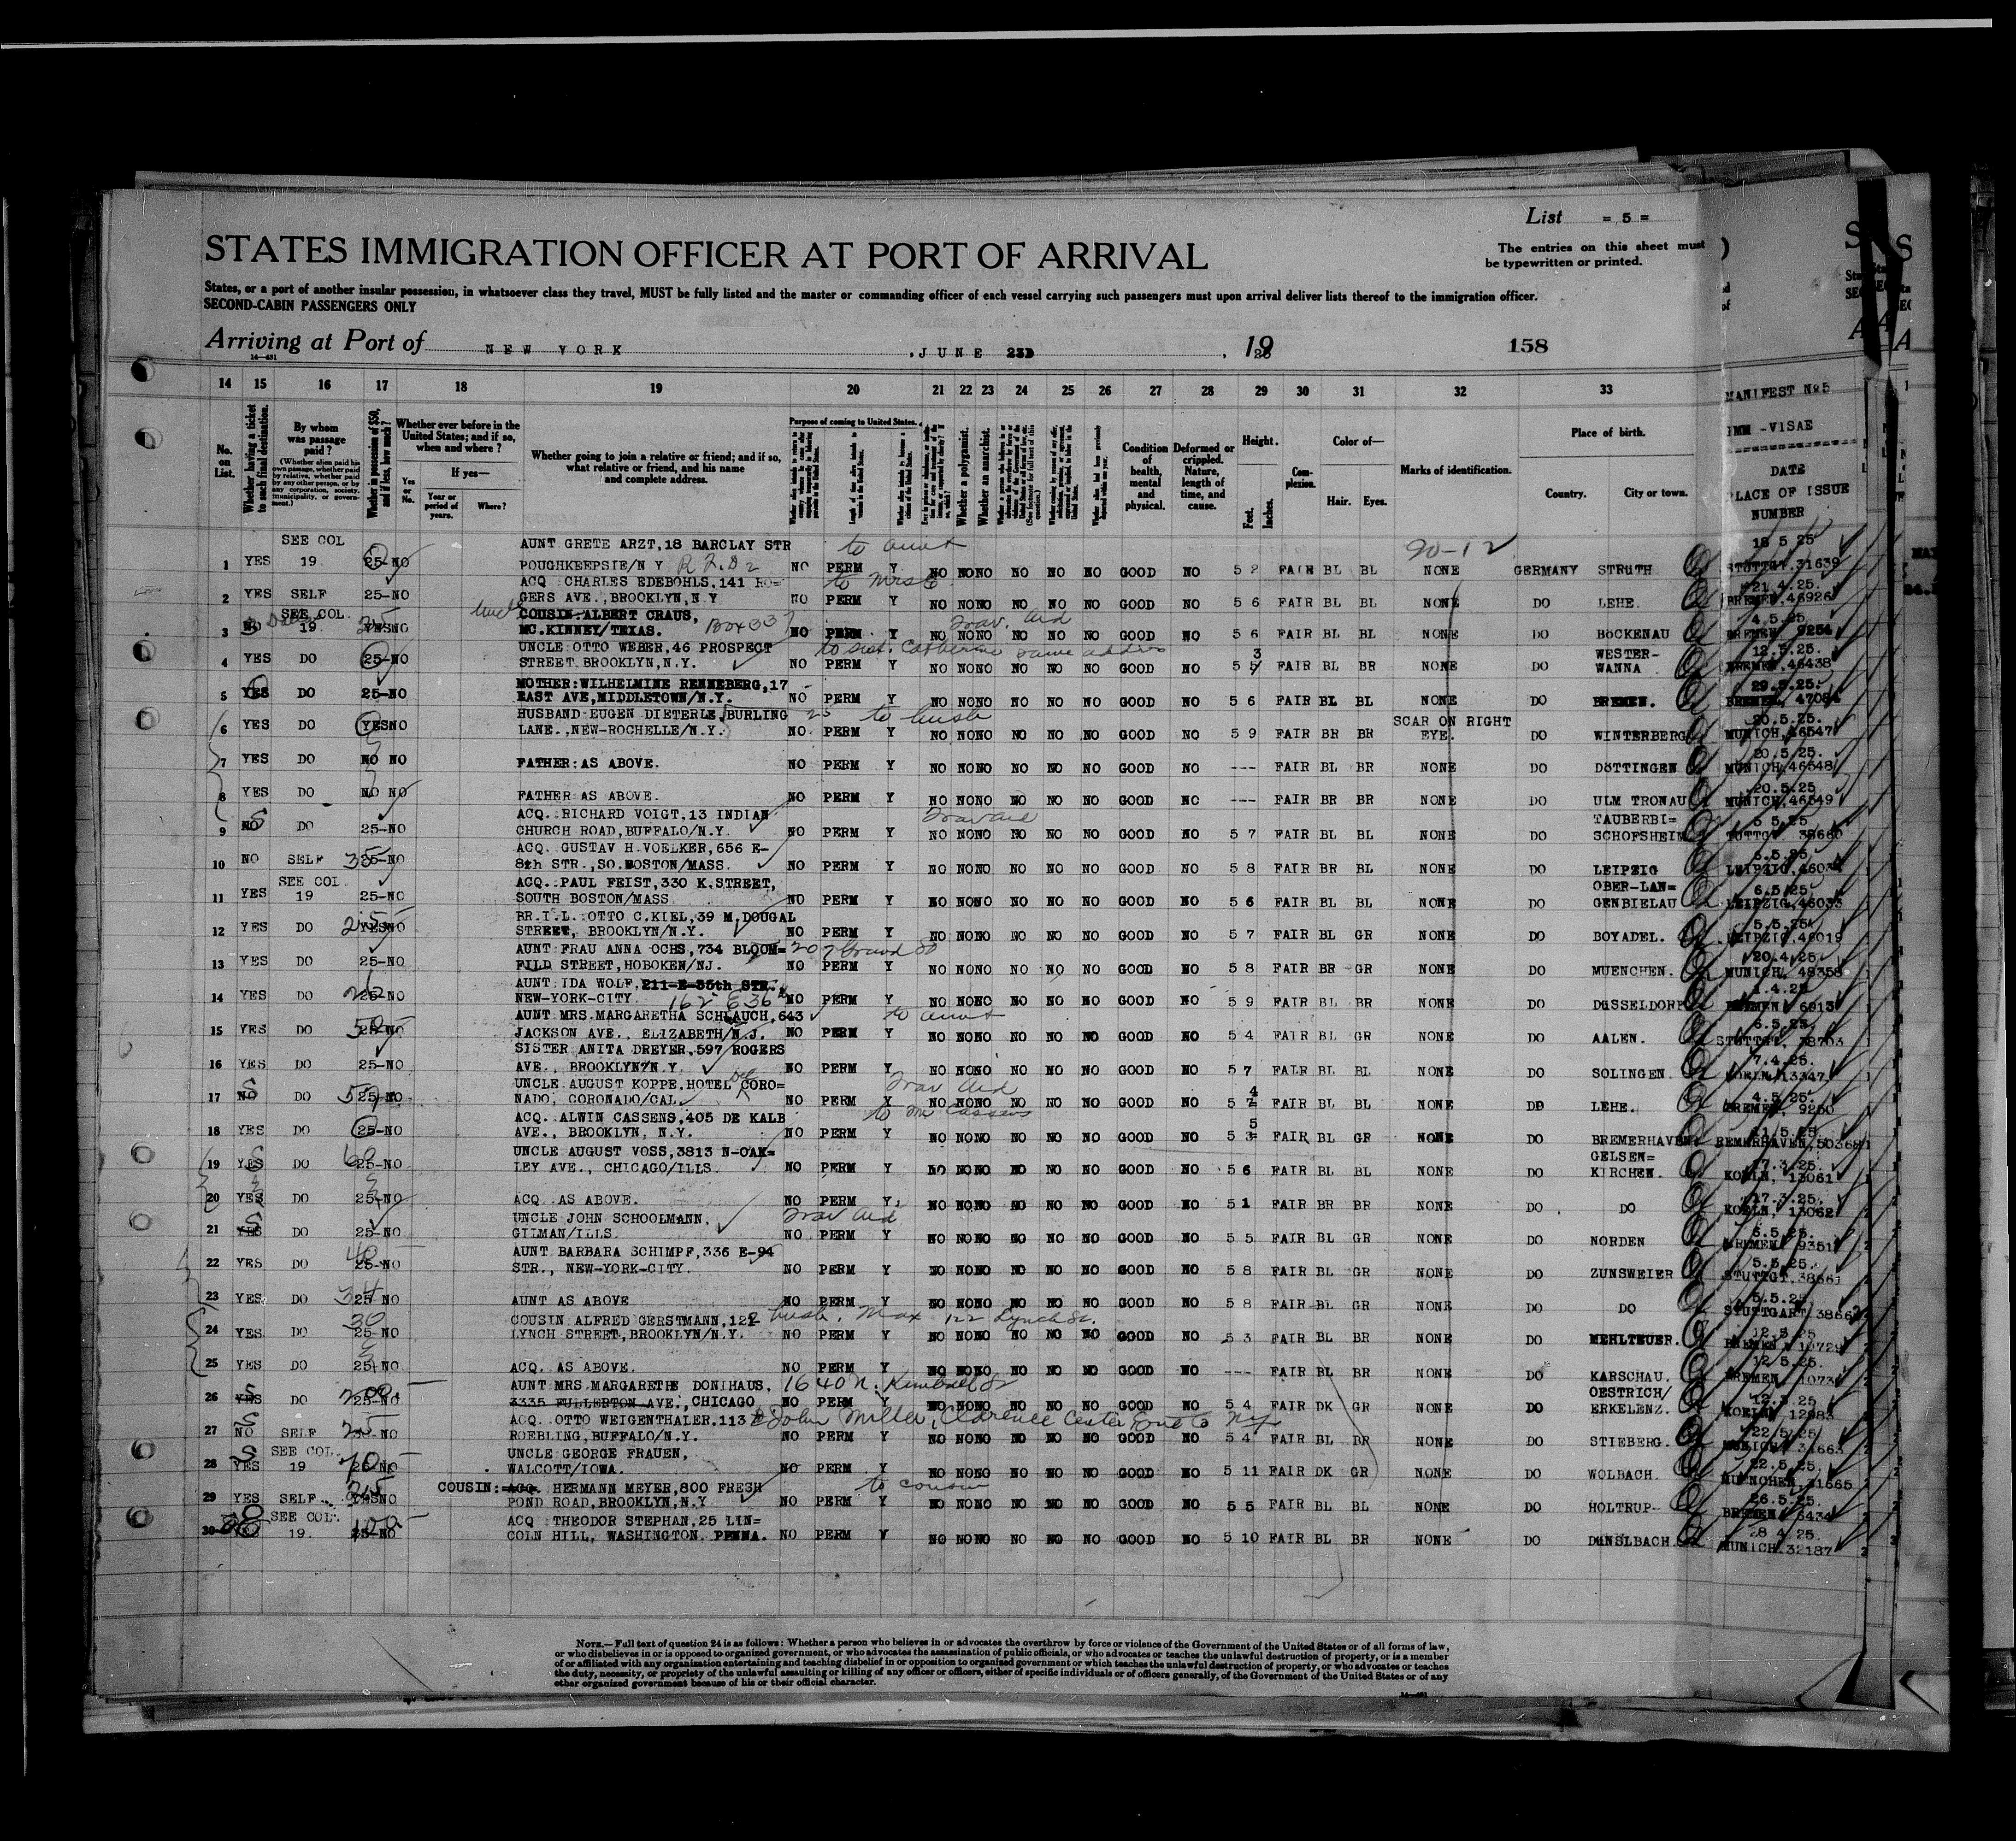 List = 5 =
STATES IMMIGRATION OFFICER AT PORT OF ARRIVAL
The entries on this sheet must
be typewritten or printed.
States, or a port of another insular possession, in whatsoever class they travel, MUST be fully listed and the master or commanding officer of each vessel carrying such passengers must upon arrival deliver lists thereof to the immigration officer.
SECOND-CABIN PASSENGERS ONLY
Arriving at Port of NEW YORK , JUNE 23D , 19 158
14 15 16 17 18 19 20 21 22 23 24 25 26 27 28 29 30 31 32 33
MANIFEST No 5
IMM -VISAE
DATE
PLACE OF ISSUE
NUMBER
No. on List.
Whether having a ticket to such final destination.
By whom was passage paid?
(Whether alien paid his own passage, whether paid by relative, whether paid by any other person, or by any corporation, society, municipality, or government.)
Whether in possession of $50, and if less, how much?
Whether ever before in the United States; and if so, when and where?
If yes—
Yes or No.
Year or period of years.
Where?
Whether going to join a relative or friend; and if so, what relative or friend, and his name and complete address.
Purpose of coming to United States.
Whether a polygamist.
Whether an anarchist.
Condition of health, mental and physical.
Deformed or crippled. Nature, length of time, and cause.
Height.
Feet. Inches.
Complexion.
Color of—
Hair. Eyes.
Marks of identification.
Place of birth.
Country. City or town.
SEE COL AUNT GRETE ARZT, 18 BARCLAY STR to aunt 90-12 18 5 25
1 YES 19 25-NO POUGHKEEPSIE/N Y NO PERM Y NO NO NO NO NO NO GOOD NO 5 2 FAIR BL BL NONE GERMANY STRUTH STUTTGT.31639
ACQ CHARLES EDEBOHLS, 141 RO= 21.4.25.
2 YES SELF 25-NO GERS AVE., BROOKLYN, N.Y NO PERM Y NO NO NO NO NO NO GOOD NO 5 6 FAIR BL BL NONE DO LEHE. BREMEN, 46926
SEE COL. Uncle COUSIN: ALBERT CRAUS, Trav. Aid 4.5.25.
3 NO 19. YES NO MC.KINNEY/TEXAS. Box 337 NO PERM. Y NO NO NO NO NO NO GOOD NO 5 6 FAIR BL BL NONE DO BöCKENAU BREMEN, 9254
UNCLE OTTO WEBER, 46 PROSPECT to sist. Catherine same address WESTER- 12.5.25.
4 YES DO 25-NO STREET, BROOKLYN, N.Y. NO PERM Y NO NO NO NO NO NO GOOD NO 5 3 FAIR BL BR NONE DO WANNA BREMEN, 46438
MOTHER: WILHELMINE RENNEBERG, 17
5 YES DO 25-NO EAST AVE, MIDDLETOWN/N.Y. NO PERM Y NO NO NO NO NO NO GOOD NO 5 6 FAIR BL BL NONE DO BREMEN.
HUSBAND EUGEN DIETERLE, BURLING 25 to husb SCAR ON RIGHT 20.5.25.
6 YES DO YES NO LANE., NEW-ROCHELLE/N.Y. NO PERM Y NO NO NO NO NO NO GOOD NO 5 9 FAIR BR BR EYE. DO WINTERBERG MUNICH, 46547
20.5.25.
7 YES DO NO NO FATHER: AS ABOVE. NO PERM Y NO NO NO NO NO NO GOOD NO --- FAIR BL BR NONE DO DöTTINGEN MUNICH, 46548
20.5.25
8 YES DO NO NO FATHER AS ABOVE. NO PERM Y NO NO NO NO NO NO GOOD NO --- FAIR BR BR NONE DO ULM TRONAU MUNICH, 46549
ACQ. RICHARD VOIGT, 13 INDIAN Trav aid TAUBERBI=
9 NO DO 25-NO CHURCH ROAD, BUFFALO/N.Y. NO PERM Y NO NO NO NO NO NO GOOD NO 5 7 FAIR BL BL NONE DO SCHOFSHEIM 38660
ACQ. GUSTAV H. VOELKER, 656 E-
10 NO SELF 35 25-NO 8th STR., SO. BOSTON/MASS. NO PERM Y NO NO NO NO NO NO GOOD NO 5 8 FAIR BR BL NONE DO LEIPZIG
SEE COL. ACQ. PAUL FEIST, 330 K. STREET, OBER-LAN= 6.5.25.
11 YES 19 25-NO SOUTH BOSTON/MASS NO PERM Y NO NO NO NO NO NO GOOD NO 5 6 FAIR BL BL NONE DO GENBIELAU LEIPZIG, 46033
BR.I.L. OTTO C. KIEL, 39 M. DOUGAL 5.5.25
12 YES DO YES NO STREET, BROOKLYN/N.Y. NO PERM Y NO NO NO NO NO NO GOOD NO 5 7 FAIR BL GR NONE DO BOYADEL. LEIPZIG, 46019
AUNT FRAU ANNA OCHS, 734 BLOOM= 207 Grand St 20.4.25.
13 YES DO 25-NO FILD STREET, HOBOKEN/NJ. NO PERM Y NO NO NO NO NO NO GOOD NO 5 8 FAIR BR GR NONE DO MUENCHEN. MUNICH, 48358
AUNT IDA WOLF, 211-E-35th STR. 1.4.25
14 YES DO 25-NO NEW-YORK-CITY. 162 E 36 NO PERM Y NO NO NO NO NO NO GOOD NO 5 9 FAIR BL BR NONE DO DüSSELDORF BREMEN 6913
AUNT MRS. MARGARETHA SCHLAUCH, 643 to aunt 6.5.25.
15 YES DO 25-NO JACKSON AVE., ELIZABETH/N.J. NO PERM Y NO NO NO NO NO NO GOOD NO 5 4 FAIR BL GR NONE DO AALEN. STUTTGT, 38703
SISTER ANITA DREYER, 597 ROGERS 7.4.25.
16 YES DO 25-NO AVE., BROOKLYN/N.Y. NO PERM Y NO NO NO NO NO NO GOOD NO 5 7 FAIR BL BL NONE DO SOLINGEN KOELN, 13347
UNCLE AUGUST KOPPE, HOTEL Del CORO= Trav Aid 4.5.25.
17 NO DO 25-NO NADO, CORONADO/CAL. NO PERM Y NO NO NO NO NO NO GOOD NO 5 4 FAIR BL BL NONE DO LEHE. BREMEN, 9260
ACQ. ALWIN CASSENS, 405 DE KALB to Mr Cassens 11.5.25.
18 YES DO 25-NO AVE., BROOKLYN, N.Y. NO PERM Y NO NO NO NO NO NO GOOD NO 5 5 FAIR BL GR NONE DO BREMERHAVEN BREMERHAVEN, 503681
UNCLE AUGUST VOSS, 3813 N-OAK= GELSEN= 17.3.25.
19 YES DO 25-NO LEY AVE., CHICAGO/ILLS. NO PERM Y NO NO NO NO NO NO GOOD NO 5 6 FAIR BL BL NONE DO KIRCHEN. KOELN, 13061
17.3.25.
20 YES DO 25-NO ACQ. AS ABOVE. NO PERM Y NO NO NO NO NO NO GOOD NO 5 1 FAIR BR BR NONE DO DO KOELN, 13062
UNCLE JOHN SCHOOLMANN, Trav Aid 6.5.25.
21 YES DO 25-NO GILMAN/ILLS. NO PERM Y NO NO NO NO NO NO GOOD NO 5 5 FAIR BL GR NONE DO NORDEN BREMEN, 9351
AUNT BARBARA SCHIMPF, 336 E-94 5.5.25.
22 YES DO 25-NO STR., NEW-YORK-CITY. NO PERM Y NO NO NO NO NO NO GOOD NO 5 8 FAIR BL GR NONE DO ZUNSWEIER STUTTGT, 38661
5.5.25.
23 YES DO 25-NO AUNT AS ABOVE NO PERM Y NO NO NO NO NO NO GOOD NO 5 8 FAIR BL GR NONE DO DO STUTTGART, 38662
COUSIN ALFRED GERSTMANN, 122 husb. Max 122 Lynch St.
24 YES DO 30 25-NO LYNCH STREET, BROOKLYN/N.Y. NO PERM Y NO NO NO NO NO NO GOOD NO 5 3 FAIR BL BR NONE DO MEHLTEUER. BREMEN, 10729
12.5.25.
25 YES DO 25-NO ACQ. AS ABOVE. NO PERM Y NO NO NO NO NO NO GOOD NO --- FAIR BL BR NONE DO KARSCHAU.
AUNT MRS. MARGARETHE DONIHAUS, 1640 N. Kimball St OESTRICH/ 12.3.25
26 YES DO 3335 FULLERTON AVE., CHICAGO NO PERM Y NO NO NO NO NO NO GOOD NO 5 4 FAIR DK GR NONE DO ERKELENZ. KOELN, 12983
ACQ. OTTO WEIGENTHALER, 113 John Miller, Clarence Center 22.5.25
27 NO SELF 25-NO ROEBLING, BUFFALO/N.Y. NO PERM Y NO NO NO NO NO NO GOOD NO 5 4 FAIR BL BR NONE DO STIEBERG. MUNICH, 31663
SEE COL. UNCLE GEORGE FRAUEN, 22.5.25.
28 YES 19 25-NO WALCOTT/IOWA. NO PERM Y NO NO NO NO NO NO GOOD NO 5 11 FAIR DK GR NONE DO WOLBACH. MUENCHEN, 31665
COUSIN: ACQ. HERMANN MEYER, 800 FRESH to cousin 26.5.25.
29 YES SELF YES NO POND ROAD, BROOKLYN, N.Y NO PERM Y NO NO NO NO NO NO GOOD NO 5 5 FAIR BL BL NONE DO HOLTRUP
SEE COL. ACQ THEODOR STEPHAN, 25 LIN= 28.4.25.
30 19. 25-NO COLN HILL, WASHINGTON. PENNA. NO PERM Y NO NO NO NO NO NO GOOD NO 5 10 FAIR BL BR NONE DO DüNSLBACH. MUNICH, 32187
NOTE.—Full text of question 24 is as follows: Whether a person who believes in or advocates the overthrow by force or violence of the Government of the United States or of all forms of law,
or who disbelieves in or is opposed to organized government, or who advocates the assassination of public officials, or who advocates or teaches the unlawful destruction of property, or is a member
of or affiliated with any organization entertaining and teaching disbelief in or opposition to organized government or which teaches the unlawful destruction of property, or who advocates or teaches
the duty, necessity, or propriety of the unlawful assaulting or killing of any officer or officers, either of specific individuals or of officers generally, of the Government of the United States or of any
other organized government because of his or their official character.